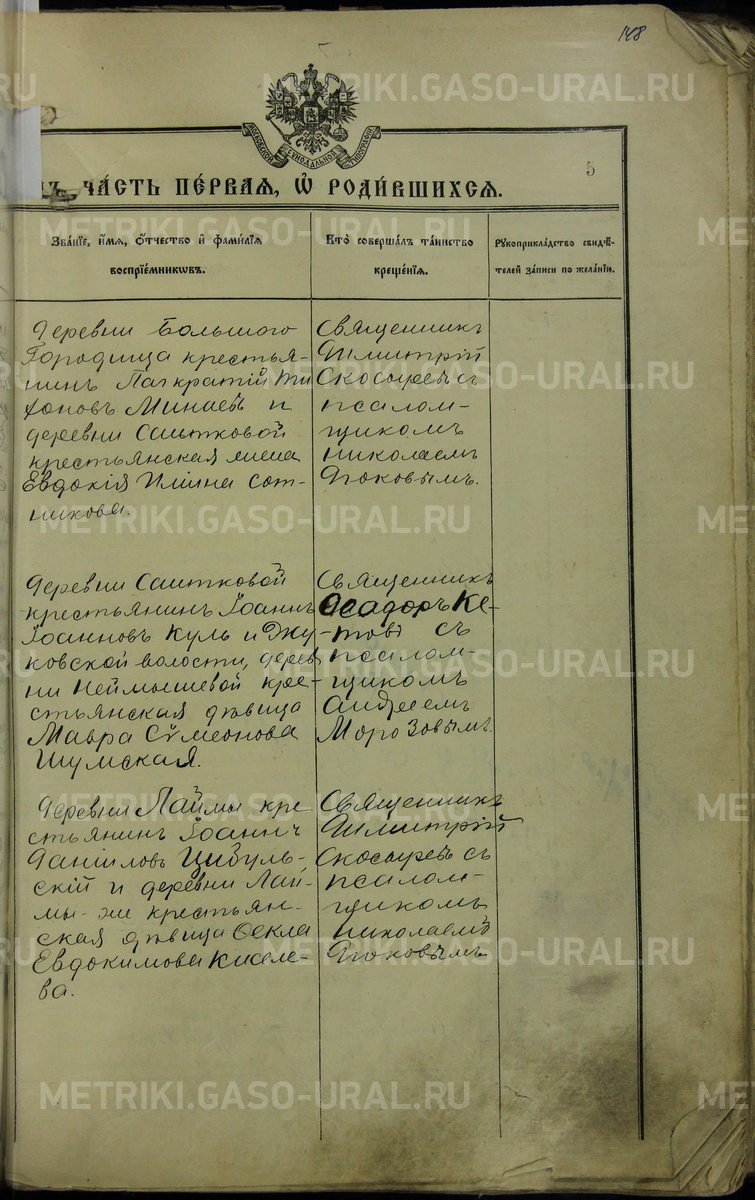 148
МОСКОВСКОЙ СѴНОДАЛЬНОЙ ТИПОГРАФІИ
5
ЧА́СТЬ ПЕ́РВАЯ, Ѡ҆ РОДИ́ВШИХСЯ.
Зва́нїе, и҆́мя, ѻ҆́тчество и҆ фами́лїя
воспрїе́мникѡвъ.
Кто̀ соверша́лъ та́инство
креще́нїя.
Рукоприкла́дство свидѣ́-
телей за́писи по жела́нїю.
Деревни Большого
Городища крестья-
нинъ Панкратій Ти
хоновъ Минаев и
деревни Саитковой
крестьянская жена
Евдокія Ильина Сот-
никова.
Священникъ
Димитрій
Скосыревъ съ
псалом-
щикомъ
Николаемъ
Яковымъ.
Деревни Саитковой
крестьянинъ Іоаннъ
Іоанновъ Куль и Жу-
ковской волости, дерев
ни Неймышевой кре-
стьянская дѣвица
Мавра Сѵмеонова
Шумская.
Священникъ
Ѳеадоръ Ке-
товъ съ
псалом-
щикомъ
Андреемъ
Морозовымъ.
Деревни Лаймы кре
стьянинъ Іоаннъ
Даніиловъ Цибуль-
скій и деревни Лай-
мы-же крестьян-
ская дѣвица Ѳекла
Евдокимова Киселе-
ва.
Священникъ
Димитрій
Скосыревъ съ
псалом-
щикомъ
Николаемъ
Яковымъ
METRIKI.GASO-URAL.RU